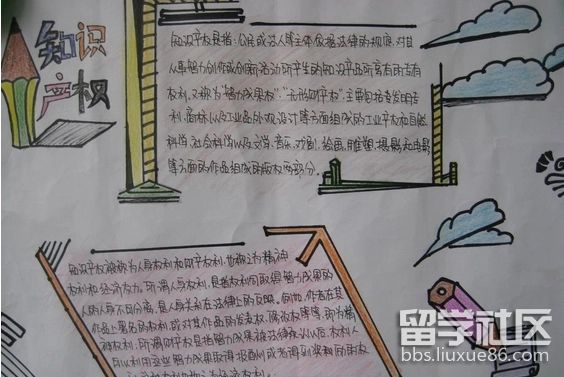 知识
产权
知识产权是指：公民或法人等主体依据法律的规定，对其
从事智力创作或创新活动所产生的知识产品所享有的专有
权利，又称为“智力成果权”“无形财产权”，主要包括发明专
利、商标以及工业品外观设计等方面组成的工业产权和自然
科学、社会科学以及文学、音乐、戏剧、绘画、雕塑、摄影和电影
等方面的作品组成的版权两部分。
知识产权被称为人身权利和财产权利，也称之为精神
权利和经济权力。所谓人身权利，是指权利同取得智力成果的
人的人身不可分离，是人身关系在法律上的反映。例如，作者在其
作品上署名的权利，或对其作品的发表权、修改权等等，即为精
神权利；所谓财产权是指智力成果被法律承认以后，权利人
可以利用这些智力成果取得报酬或者得到奖励的权
留学社区
bbs.liuxue86.com